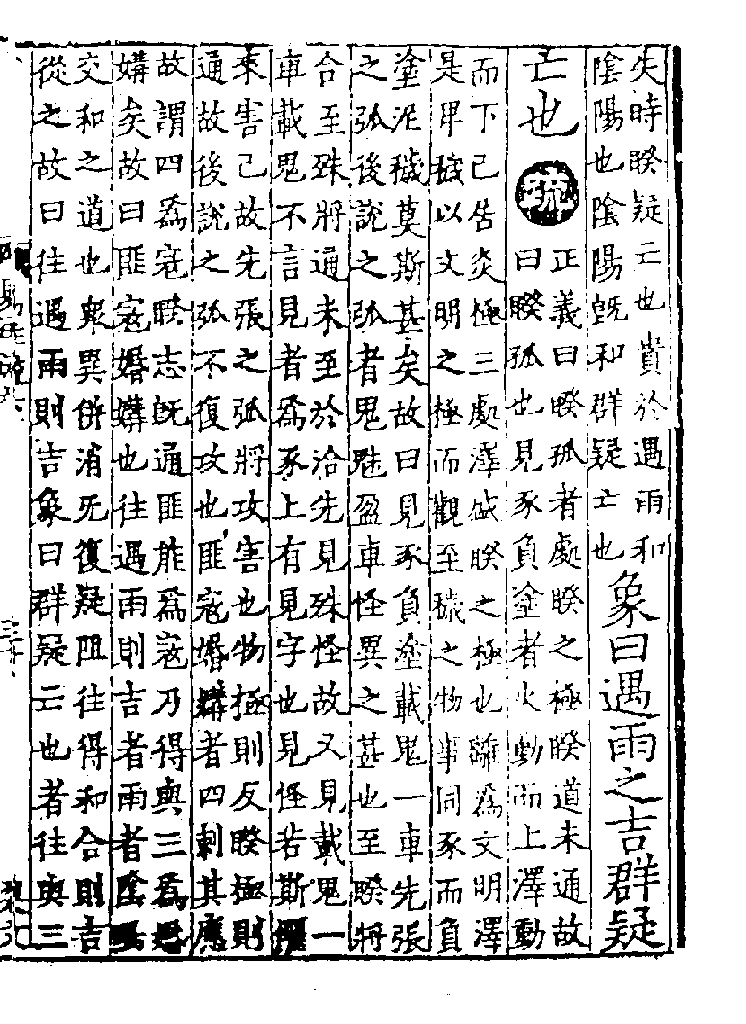 失時睽疑亡也貴於遇雨和
陰陽也陰陽既和群疑亡也
象曰遇雨之吉群疑
亡也
疏
正義曰睽孤者處睽之極睽道未通故
曰睽孤也見豕負塗者火動而上澤動
而下已居炎極三處澤盛睽之極也離為文明澤
是卑穢以文明之極而觀至穢之物事同豕而負
塗泥穢莫斯甚矣故曰見豕負塗載鬼一車先張
之弧後說之弧者鬼魅盈車怪異之甚也至睽將
合至殊將通未至於洽先見殊怪故又見載鬼一
車載鬼不言見者為豕上有見字也見怪若斯懼
來害己故先張之弧將攻害也物極則反睽極則
通故後說之弧不復攻也匪寇婚媾者四剠其應
故謂四為寇睽志既通匪能為寇乃得與三為
媾矣故曰匪寇婚媾也往遇雨則吉者雨者陰
交和之道也衆異併消无復疑阻往得和合則吉
從之故曰往遇雨則吉象曰群疑亡也者往與三